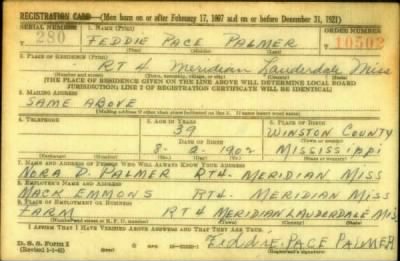 REGISTRATION CARD—(Men born on or after February 17, 1897 and on or before December 31, 1921)
SERIAL NUMBER
1. NAME (Print)
ORDER NUMBER
280
FEDDIE PACE PALMER
10502
(First) (Middle) (Last)
2. PLACE OF RESIDENCE (Print)
RT 4 Meridian Lauderdale Miss
(Number and street) (Town, township, village, or city) (County) (State)
[THE PLACE OF RESIDENCE GIVEN ON THE LINE ABOVE WILL DETERMINE LOCAL BOARD
JURISDICTION; LINE 2 OF REGISTRATION CERTIFICATE WILL BE IDENTICAL]
3. MAILING ADDRESS
SAME ABOVE
[Mailing address if other than place indicated on line 2. If same insert word same]
4. TELEPHONE
5. AGE IN YEARS
6. PLACE OF BIRTH
39
WINSTON COUNTY
DATE OF BIRTH
(Town or county)
8-9-1902
MISSISSIPPI
(Exchange) (Number) (Mo.) (Day) (Yr.) (State or country)
7. NAME AND ADDRESS OF PERSON WHO WILL ALWAYS KNOW YOUR ADDRESS
NORA D. PALMER RT4- MERIDIAN MISS
8. EMPLOYER'S NAME AND ADDRESS
MACK EMMONS RT4- MERIDIAN MISS
9. PLACE OF EMPLOYMENT OR BUSINESS
FARM RT4 MERIDIAN LAUDERDALE MISS
(Number and street or R. F. D. number) (Town) (County) (State)
I AFFIRM THAT I HAVE VERIFIED ABOVE ANSWERS AND THAT THEY ARE TRUE.
D. S. S. Form 1
(Revised 1-1-42)
FEDDIE PACE PALMER